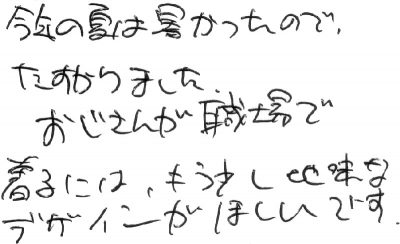 今年の夏は暑かったので、
たすかりました。
おじさんが職場で
着るには、もう少し地味な
デザインがほしいです。